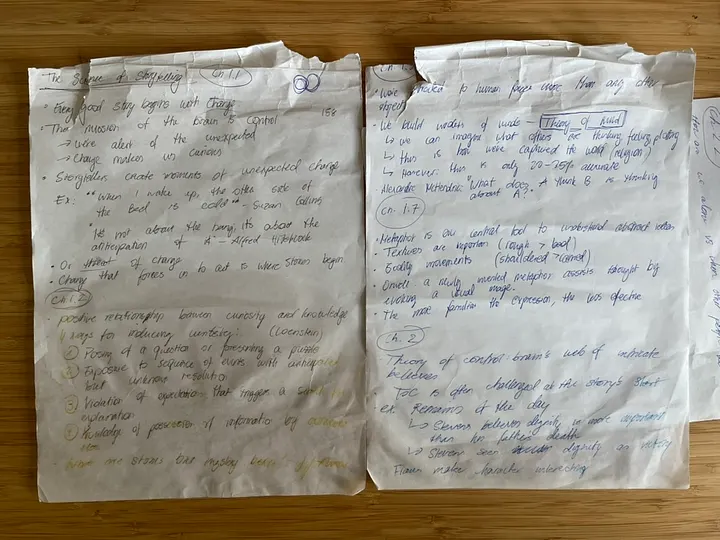 The Science of Storytelling Ch 1.1
• Every good story begins with Change 158
• The mission of the brain is control
→ we're alert of the unexpected
→ Change makes us curious
• Storytellers create moments of unexpected change
Ex: "When I wake up, the other side of
the bed is cold" - Suzan Collins
"It's not about the bang, it's about the
anticipation of it" - Alfred Hitchcock
• Or threat of change
• Change that forces us to act is where stories begin
Ch 1.2
positive relationship between curiosity and knowledge
4 ways for inducing curiosity: (Loenstein)
① Posing of a question or presenting a puzzle
② Exposure to sequence of events with anticipated
but unknown resolution
③ Violation of expectations that triggers a search for
explanation
④ Knowledge of possession of information by someone
else
to human faces more than any other
object
• We build models of minds - Theory of Mind
↳ we can imagine what others are thinking feeling plotting
↳ this is how we captured the world (religion)
↳ However: this is only 20-35% accurate
"What does A think B is thinking
about A?"
Ch. 1.7
• Metaphor is our central tool to understand abstract ideas
• Textures are important (rough > bad)
• Bodily movements (shouldered > carried)
• Orwell: a newly invented metaphor assists thought by
evoking a visual image
• The more familiar the expression, the less effective
Ch. 2
Theory of control: brain's web of intricate
believes
TOC is often challenged at the story's start
ex. Remains of the day
↳ Stevens believes dignity is more important
than his father's death
↳ Stevens seen dignity as
Flaws make character interesting
Ch 2.2